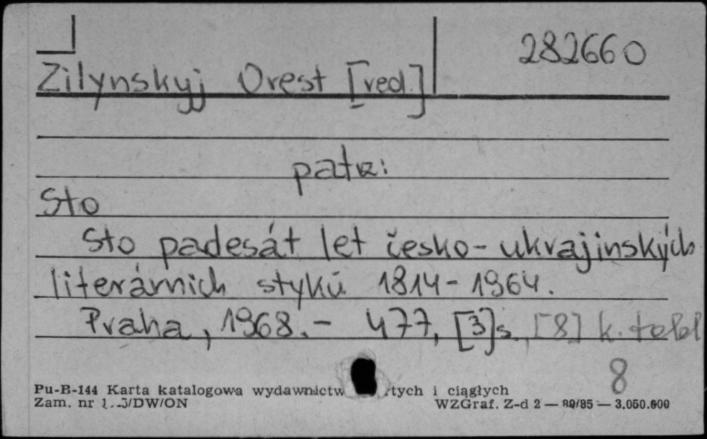 282660
Zilynskyj Orest [red.]
patrz:
Sto
Sto padesát let česko-ukrajinských
literárních styků 1814-1964.
Praha, 1968.- 477, [3]s., [8] k. tabl
8
Pu-B-144 Karta katalogowa wydawnictw tych i ciągłych
Zam. nr WZGraf. Z-d 2 — 89/85 — 3.050.000